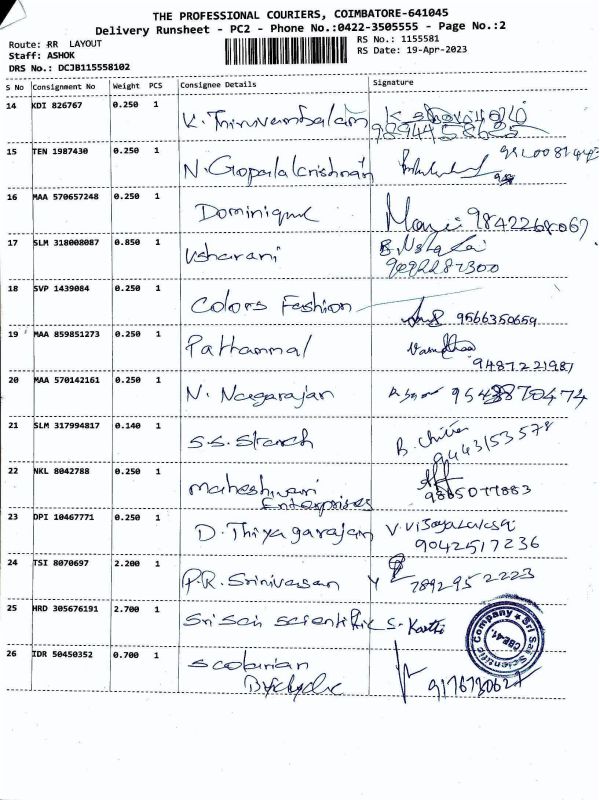 THE PROFESSIONAL COURIERS, COIMBATORE-641045
Delivery Runsheet - PC2 - Phone No.:0422-3505555 - Page No.:2
Route: RR LAYOUT
Staff: ASHOK
DRS No.: DCJB115558102
RS No.: 1155581
RS Date: 19-Apr-2023
S No Consignment No Weight PCS Consignee Details Signature
14 KDI 826767 0.250 1 K. Thiruvambalam
15 TEN 1987430 0.250 1 N. Gopalakrishnan
16 MAA 570657248 0.250 1 Dominique 9842268067
17 SLM 318008087 0.850 1 Usharani
9092287300
18 SVP 1439084 0.250 1 Colors Fashion 9566350659
19 MAA 859851273 0.250 1 Pattammal
9487221987
20 MAA 570142161 0.250 1 N. Nagarajan
21 SLM 317994817 0.140 1 S.S. Starch B. Chitra
9443153578
22 NKL 8042788 0.250 1 Maheshwari
Enterprises 9865077883
23 DPI 10467771 0.250 1 D. Thiyagarajan V. Vijayalakshmi
9042517236
24 TSI 8070697 2.200 1 P.R. Srinivasan 7892952223
25 HRD 305676191 2.700 1 Sri Sai Scientific S. Karthi
Sri Sai Scientific Company
CBE-41.
26 IDR 50450352 0.700 1